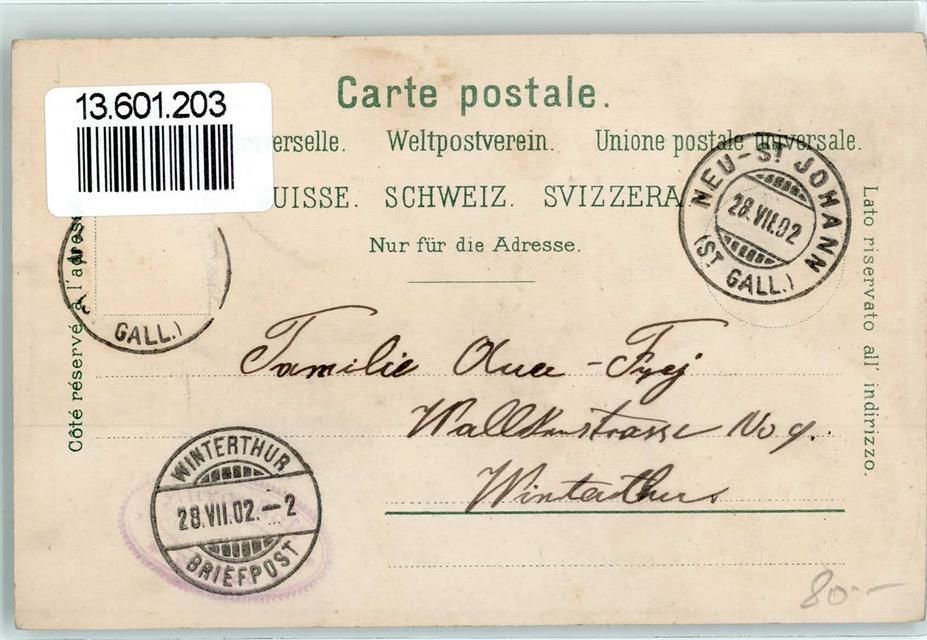 13.601.203
Carte postale.
Weltpostverein. Unione postale universale.
UISSE. SCHWEIZ. SVIZZERA
Nur für die Adresse.
Côté réservé à l'adresse
Lato riservato all' indirizzo.
NEU-ST JOHANN
28.VII.02
(ST GALL.)
GALL.)
Familie
Winterthur
WINTERTHUR
28.VII.02.-2
BRIEFPOST
80.-